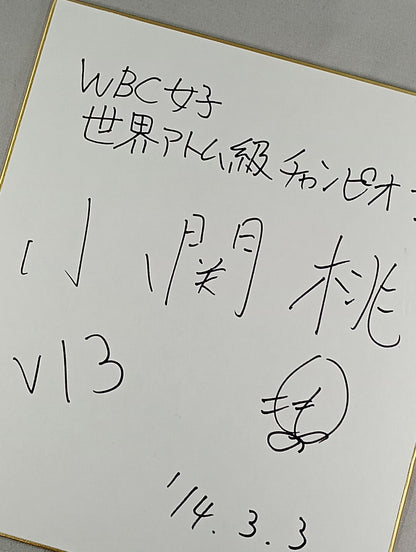 WBC女子
世界アトム級チャンピオン
小関桃
V13
もも
'14.3.3